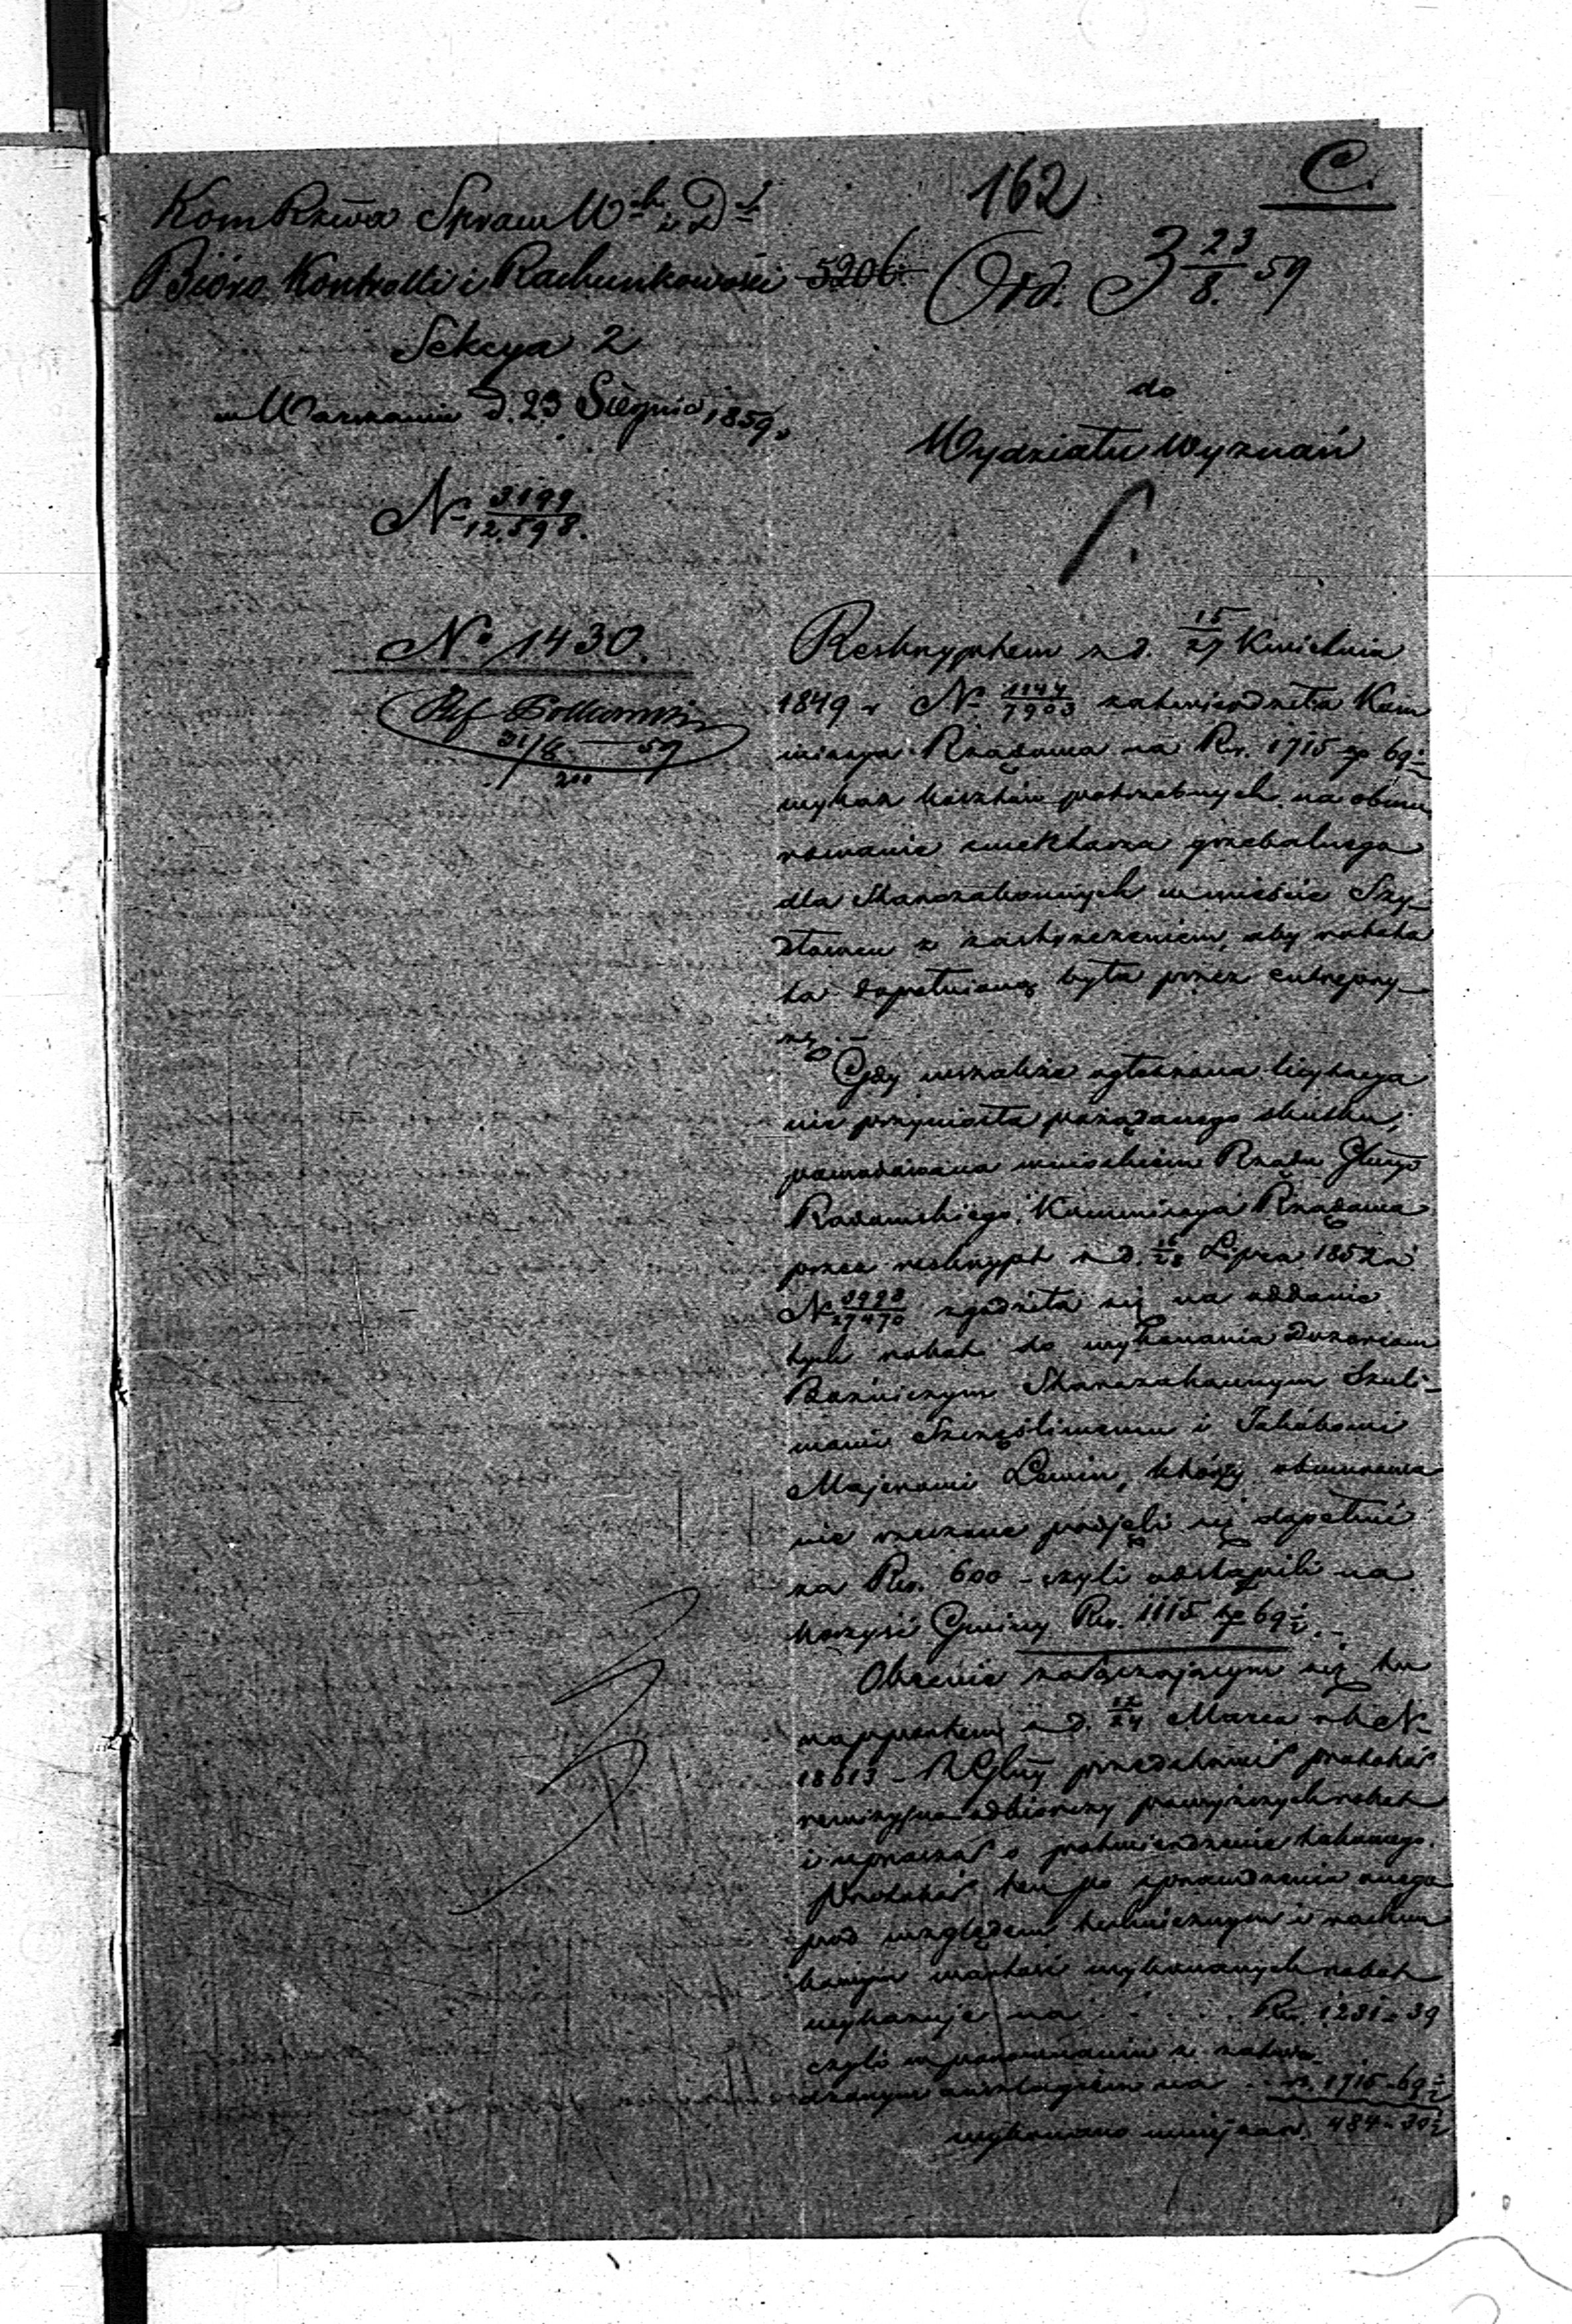 162
C.
Kom Rzwa Spraw W i D
Bióro Kontrolli i Rachunkowości 5206.
Odd. 3 23/8. 59
Sekcya 2
w Warszawie d. 23 Sierpnia 1859.
do
Wydziału Wyznań
N 3199/12.598.
No 1430.
Ref
31/8 — 59
200
Reskryptem z d. 15/27 Kwietnia
1849 r N 1144/7903 zatwierdziła Kom
missya Rządowa na Rs. 1715 kp 69½
wykaz kosztów potrzebnych na obmu
rowanie cmentarza grzebalnego
dla Starozakonnych w mieście Szy-
dłowcu z zastrzeżeniem, aby robota
ta dopełnioną była przez entrepry-
zę.—
Gdy wszakże ogłoszona licytacya
nie przyniosła pożądanego skutku,
powodowana wnioskiem Rządu Gbnego
Radomskiego, Kommissya Rządowa
przez reskrypt z d. 16/28 Lipca 1852 r
N 3998/27470 zgodziła się na oddanie
tych robót do wykonania Dozorcom
Bożniczym Starozakonnym Szuli-
mowi Szczęśliwemu i Jakóbowi
Majerowi Lewin, którzy obmurowa
nie rzeczone podjęli się dopełnić
za Rs. 600 – czyli odstąpili na
korzyść Gminy Rs. 1115 kp 69½.—
Obecnie załączającym się tu
rapportem z d. 12/24 Marca rb N
18613 – RGbny przedstawił protokół
rewizyjno-odbiorczy powyższych robót
i uprasza o potwierdzenie takowego.
Protokół ten po sprawdzeniu onego
pod względem technicznym i rachun
kowym wartość wykonanych robót
wykazuje na . . . . Rs. 1231 – 39
czyli w porównaniu z zatwier-
dzonym anszlagiem na . . rs. 1715 – 69½
wykonano mniej za rs. 484 – 30½